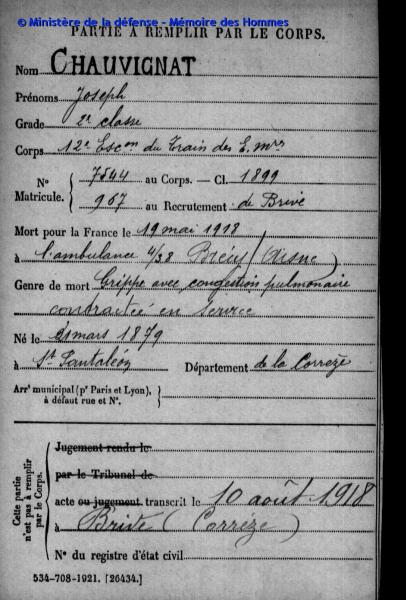 © Ministère de la défense - Mémoire des Hommes
PARTIE À REMPLIR PAR LE CORPS.
Nom CHAUVIGNAT
Prénoms Joseph
Grade 2e classe
Corps 12e Escon du Train des E. Mres
N° Matricule. { 7544 au Corps. — Cl. 1899
967 au Recrutement de Brive
Mort pour la France le 19 mai 1918
à l'ambulance 4/38 Brécy (Aisne)
Genre de mort Grippe avec congestion pulmonaire
contractée en service
Né le 21 mars 1879
à St Pantaléon Département de la Corrèze
Arrt municipal (pr Paris et Lyon), à défaut rue et N°.
Cette partie n'est pas à remplir par le Corps.
Jugement rendu le
par le Tribunal de
acte ou jugement transcrit le 10 août 1918
à Brive (Corrèze)
N° du registre d'état civil
534-708-1921. [26434.]